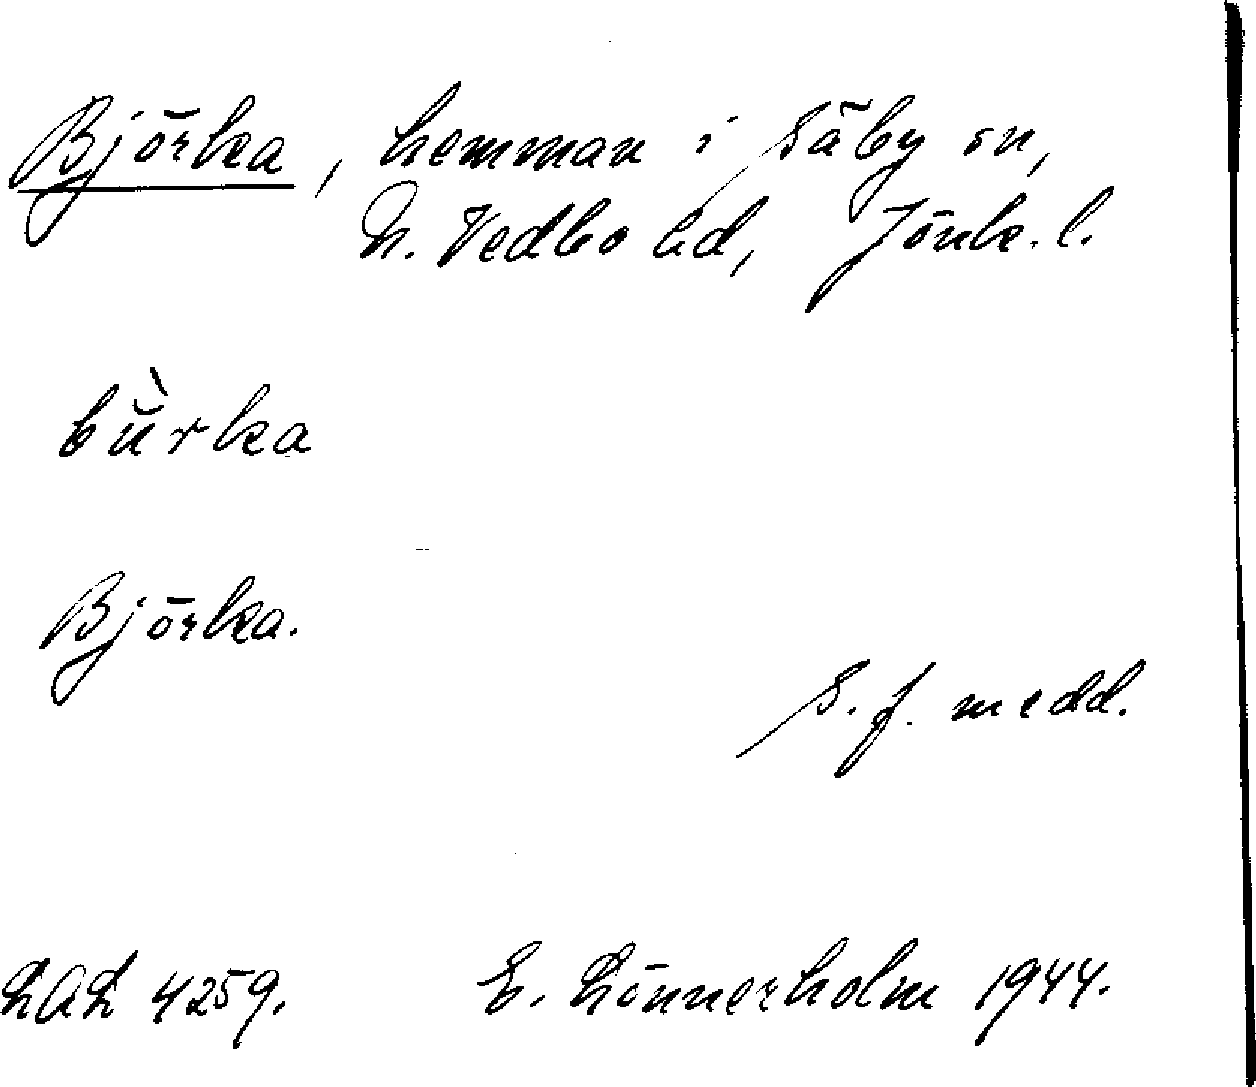 Björka, hemman i Säby sn,
N. Vedbo hd, Jönk. l.
bŭ̀rka
Björka.
S. f. medd.
LAL 4259. E. Lönnerholm 1944.